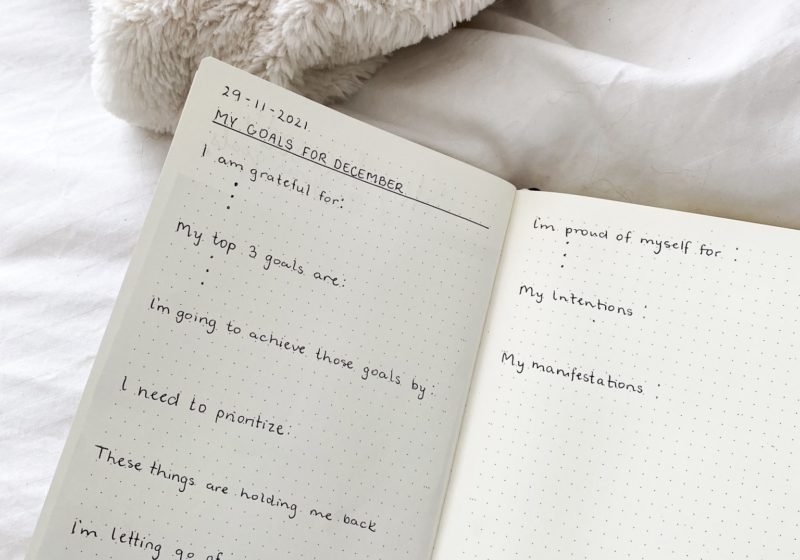 29-11-2021
MY GOALS FOR DECEMBER
I am grateful for:
My top 3 goals are:
I'm going to achieve those goals by:
I need to prioritize:
These things are holding me back
I'm letting go of
I'm proud of myself for :
My intentions :
My manifestations :